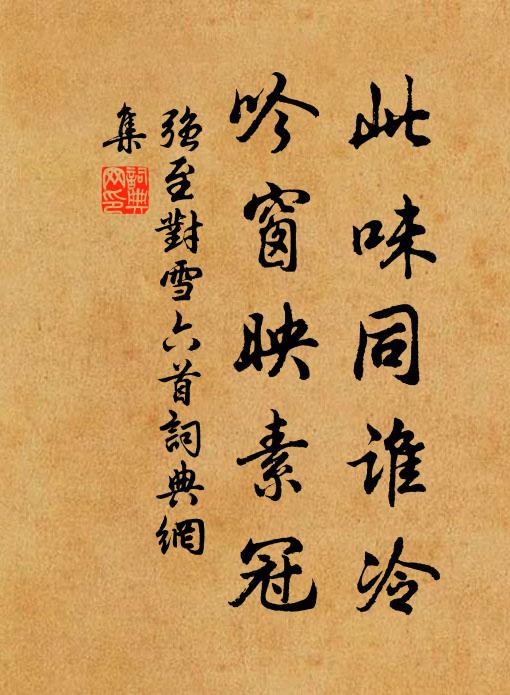 此味同谁冷
吟窗映素冠
强至對雪六首詞典網
集
詞典
网印